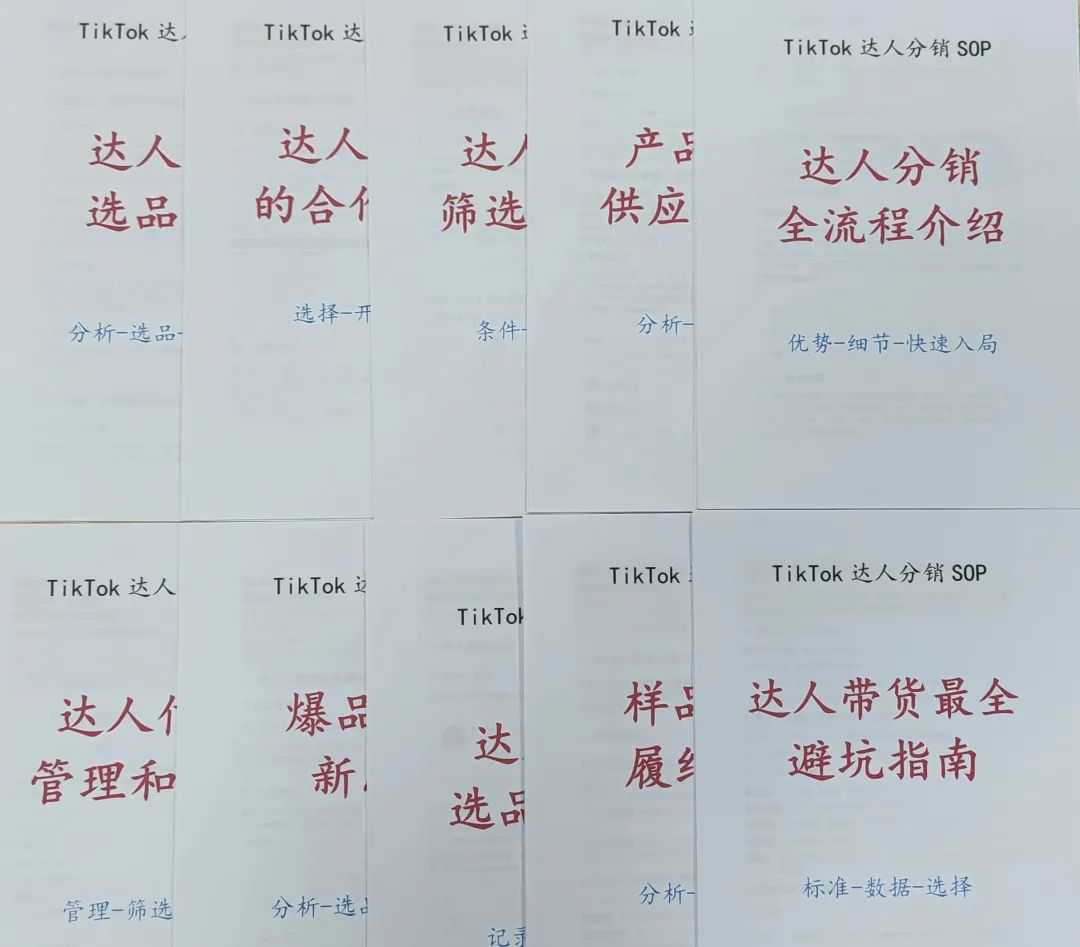 TikTok 达
达人
选品
分析-选品-
TikTok 达
达人
的合
选择-开
TikTok
达
筛选
条件-
TikTok
产品
供应
分析-
TikTok 达人分销 SOP
达人分销
全流程介绍
优势-细节-快速入局
TikTok 达人
达人
管理和
管理-筛选
TikTok 达
爆品
新
分析-选品
TikTok
达
选品
记录
TikTok
样品
履约
分析-
TikTok 达人分销 SOP
达人带货最全
避坑指南
标准-数据-选择